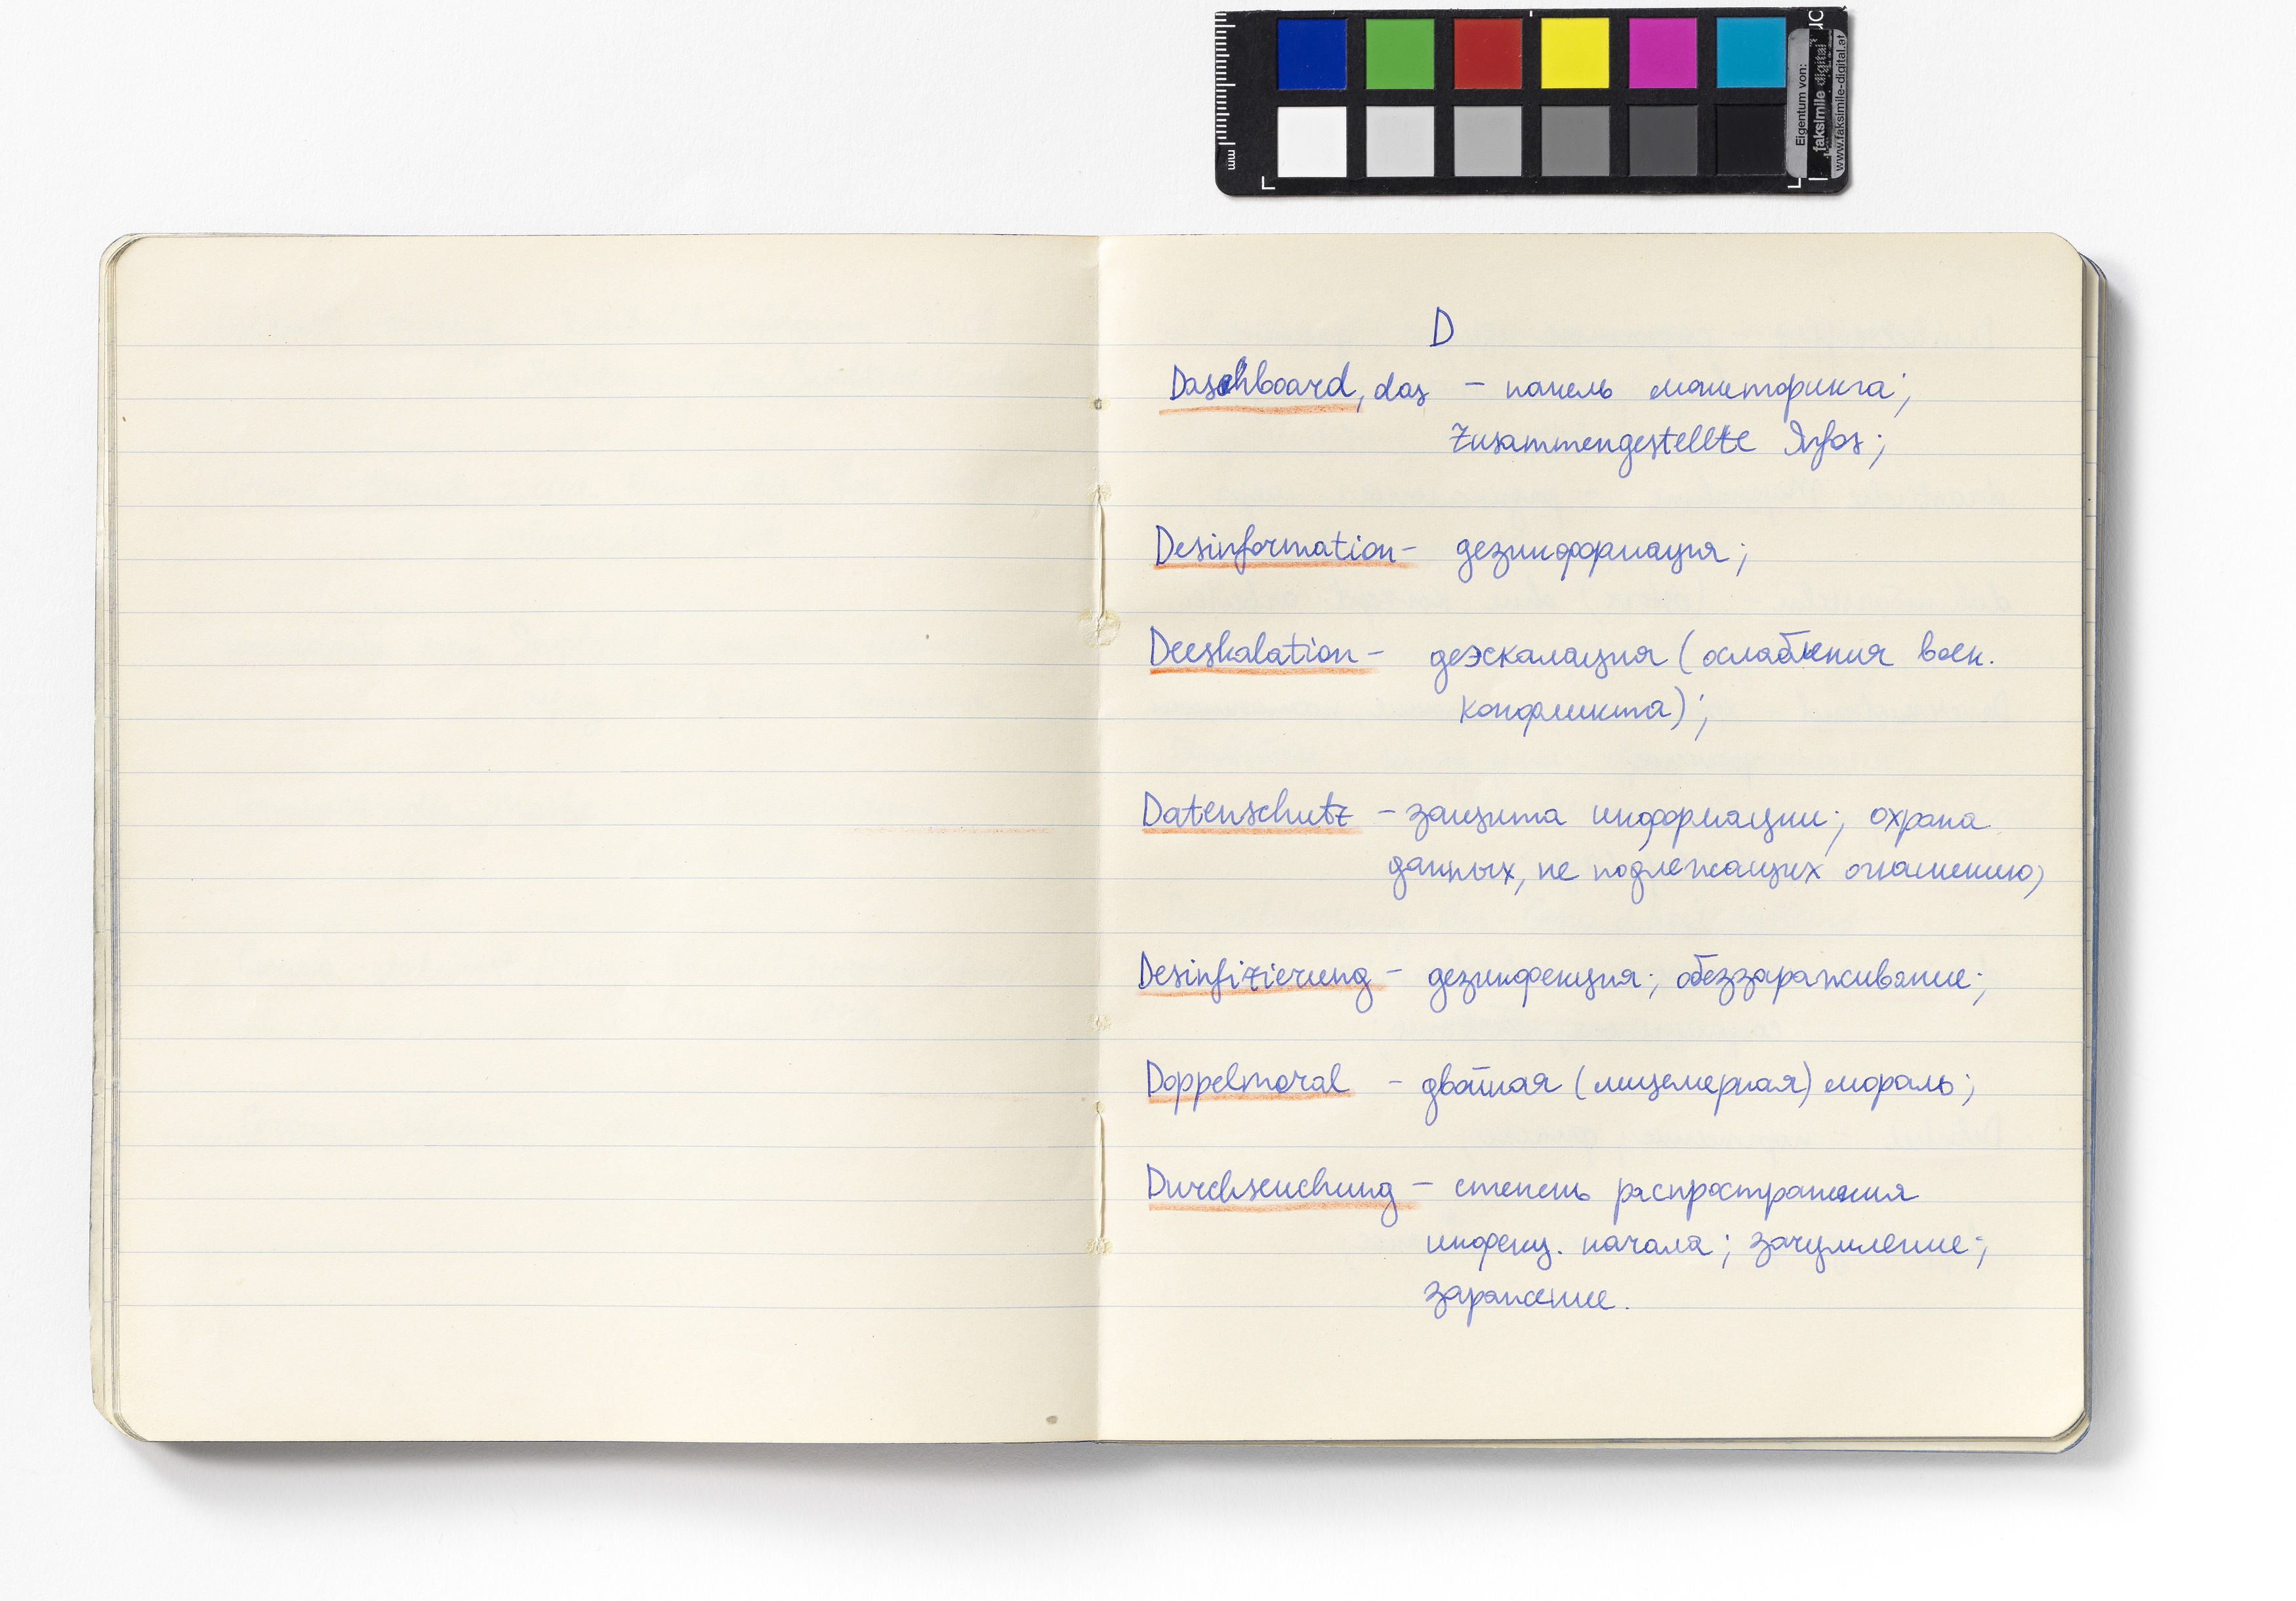 mm
Eigentum von:
faksimile digital
www.faksimile-digital.at
D
Daschboard, das – панель мониторинга;
Zusammengestellte Infos;
Desinformation – дезинформация;
Deeskalation – деэскалация (ослабления воен.
конфликта);
Datenschutz – защита информации; охрана
данных, не подлежащих оглашению;
Desinfizierung – дезинфекция; обеззараживание;
Doppelmoral – двойная (лицемерная) мораль;
Durchseuchung – степень распространения
инфекц. начала; зачумление;
заражение.